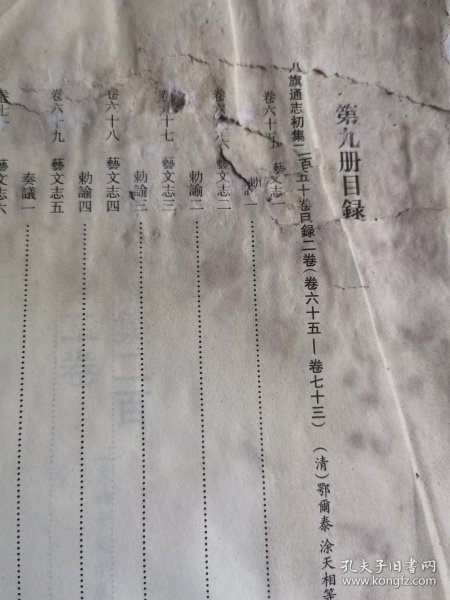 第九册目録
八旗通志初集二百五十卷目録二卷(卷六十五—卷七十三) (清)鄂爾泰 涂天相等
卷六十五 藝文志一
勅
卷六 六 藝文志二
勅諭二
卷 十七 藝文志三
勅諭三
卷六十八 藝文志四
勅諭四
卷六十九 藝文志五
奏議一
卷七 藝文志六
孔夫子旧书网
www.kongfz.com